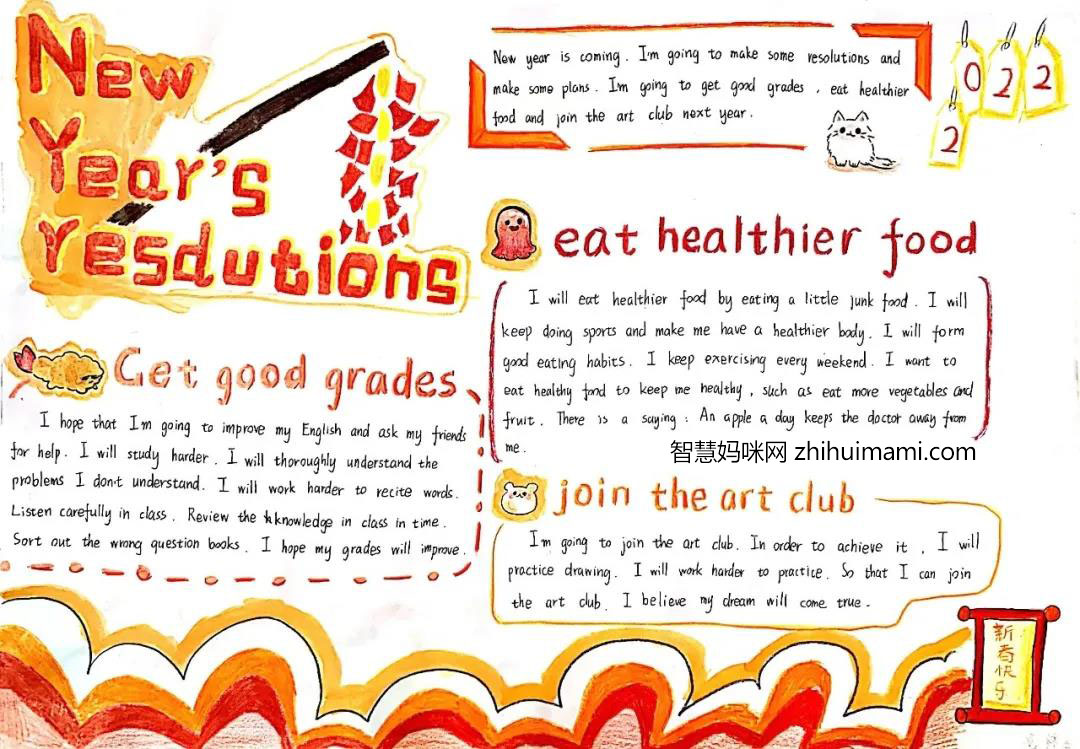 New
Year's
resdutions
New year is coming. I'm going to make some resolutions and
make some plans. I'm going to get good grades, eat healthier
food and join the art club next year.
022
2
eat healthier food
I will eat healthier food by eating a little junk food. I will
keep doing sports and make me have a healthier body. I will form
good eating habits. I keep exercising every weekend. I want to
eat healthy food to keep me healthy, such as eat more vegetables and
fruit. There is a saying: An apple a day keeps the doctor away from
me.
智慧妈咪网 zhihuimami.com
Get good grades
I hope that I'm going to improve my English and ask my friends
for help. I will study harder. I will thoroughly understand the
problems I don't understand. I will work harder to recite words.
Listen carefully in class. Review the knowledge in class in time.
Sort out the wrong question books. I hope my grades will improve.
join the art club
I'm going to join the art club. In order to achieve it, I will
practice drawing. I will work harder to practice. So that I can join
the art club. I believe my dream will come true.
新春快乐